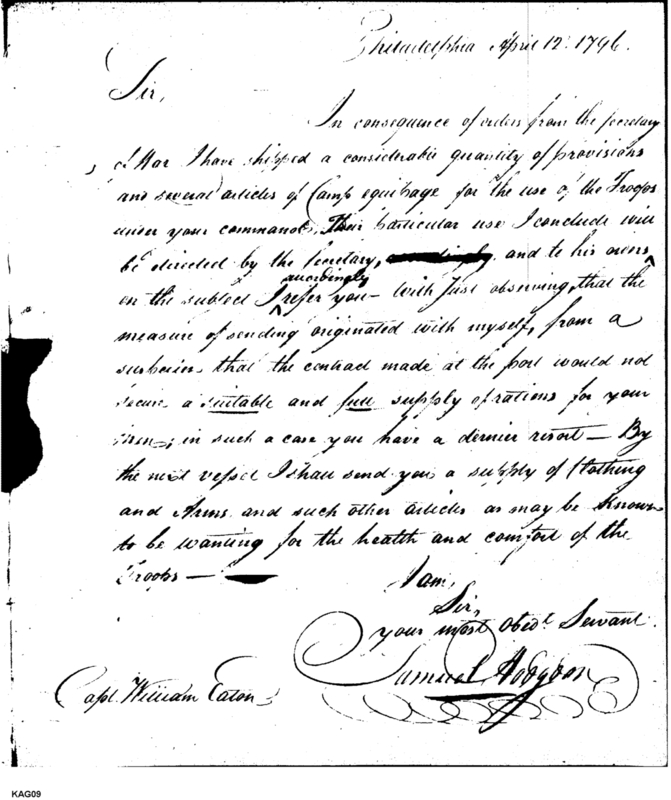 Philadelphia April 12th 1796.
Sir,
In consequence of orders from the Secretary
of War I have shipped a considerable quantity of provisions
and several articles of Camp equipage for the use of the Troops
under your command, Their particular use I conclude will
be directed by the Secretary, accordingly, and to his orders
on the subject I accordingly refer you — With just observing, that the
measure of sending originated with myself, from a
suspicion that the contract made at the post would not
secure a suitable and full supply of rations for your
men, in such a case you have a dernier resort — By
the next vessel I shall send you a supply of Clothing
and Arms and such other articles as may be known
to be wanting for the health and comfort of the
Troops —
I am,
Sir,
your most Obedt Servant
Samuel Hodgdon
Capt. William Eaton
KAG09